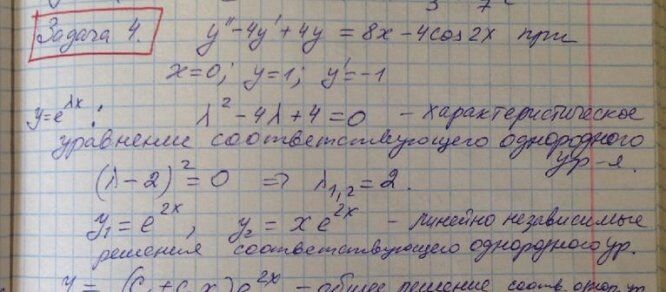 Задача 4. y'' - 4y' + 4y = 8x - 4cos2x при
x=0; y=1; y'=-1
y=e^{λx}: λ² - 4λ + 4 = 0 - характеристическое
уравнение соответствующего однородного
ур-я.
(λ-2)² = 0 ⇒ λ_{1,2} = 2.
y₁ = e^{2x}, y₂ = x e^{2x} - линейно независимые
решения соответствующего однородного ур.
y = (C₁ + C₂x)e^{2x} - общее решение соотв. однор. ур